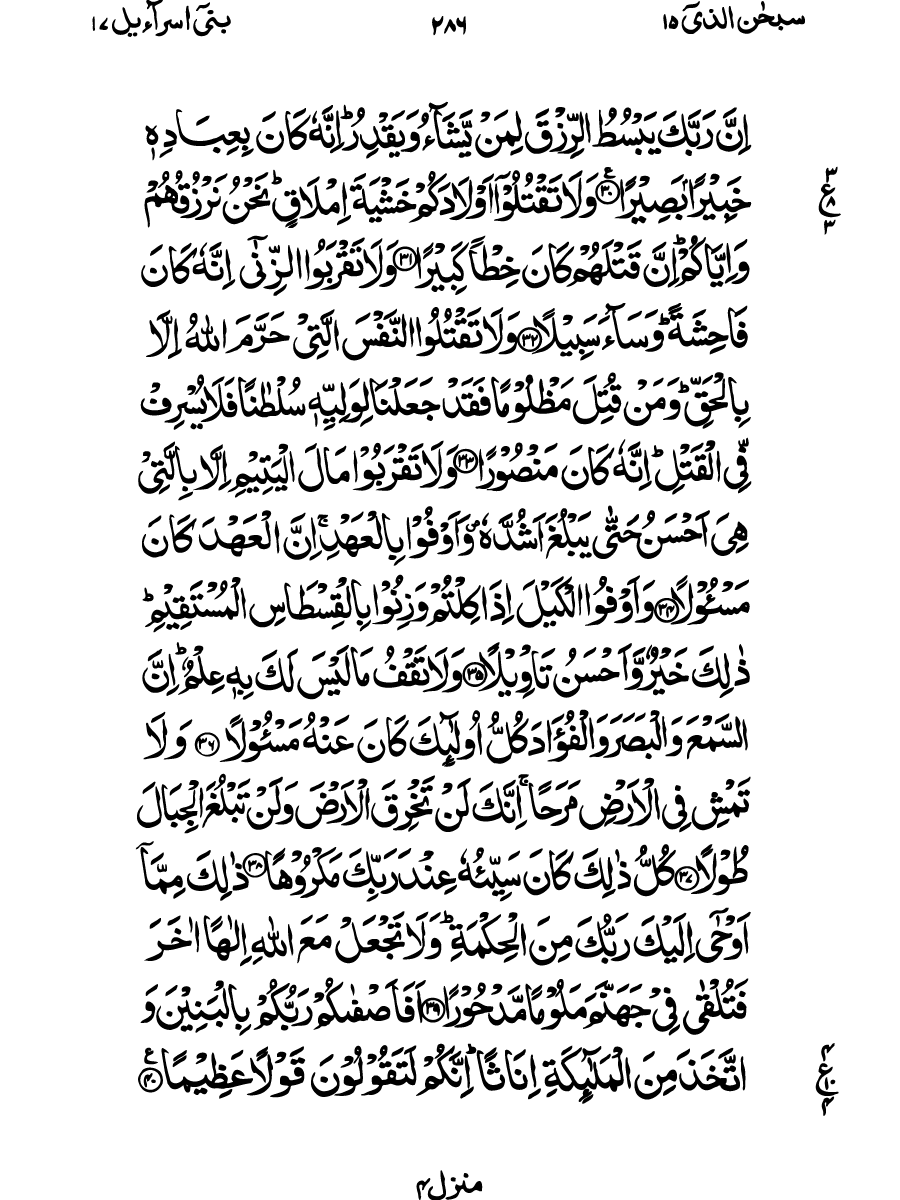 سبحٰن الذیٓ ۱۵ ۲۸۶ بنیٓ اسرآءیل ۱۷
اِنَّ رَبَّكَ يَبْسُطُ الرِّزْقَ لِمَنْ يَّشَآءُ وَيَقْدِرُ ؕ اِنَّهٗ كَانَ بِعِبَادِهٖ
خَبِيْرًۢا بَصِيْرًا ۳۰ ع وَلَا تَقْتُلُوْۤا اَوْلَادَكُمْ خَشْيَةَ اِمْلَاقٍ ؕ نَحْنُ نَرْزُقُهُمْ
۳ ع ۸ ۳
وَاِيَّاكُمْ ؕ اِنَّ قَتْلَهُمْ كَانَ خِطْاً كَبِيْرًا ۳۱ وَلَا تَقْرَبُوا الزِّنٰۤى اِنَّهٗ كَانَ
فَاحِشَةً ؕ وَسَآءَ سَبِيْلًا ۳۲ وَلَا تَقْتُلُوا النَّفْسَ الَّتِىْ حَرَّمَ اللّٰهُ اِلَّا
بِالْحَقِّ ؕ وَمَنْ قُتِلَ مَظْلُوْمًا فَقَدْ جَعَلْنَا لِوَلِيِّهٖ سُلْطٰنًا فَلَا يُسْرِفْ
فِّى الْقَتْلِ ؕ اِنَّهٗ كَانَ مَنْصُوْرًا ۳۳ وَلَا تَقْرَبُوْا مَالَ الْيَتِيْمِ اِلَّا بِالَّتِىْ
هِىَ اَحْسَنُ حَتّٰى يَبْلُغَ اَشُدَّهٗ ۪ وَاَوْفُوْا بِالْعَهْدِ ۚ اِنَّ الْعَهْدَ كَانَ
مَسْئُوْلًا ۳۴ وَاَوْفُوا الْكَيْلَ اِذَا كِلْتُمْ وَزِنُوْا بِالْقِسْطَاسِ الْمُسْتَقِيْمِ ؕ
ذٰلِكَ خَيْرٌ وَّاَحْسَنُ تَاْوِيْلًا ۳۵ وَلَا تَقْفُ مَا لَيْسَ لَكَ بِهٖ عِلْمٌ ؕ اِنَّ
السَّمْعَ وَالْبَصَرَ وَالْفُؤَادَ كُلُّ اُولٰٓئِكَ كَانَ عَنْهُ مَسْئُوْلًا ۳۶ وَلَا
تَمْشِ فِى الْاَرْضِ مَرَحًا ۚ اِنَّكَ لَنْ تَخْرِقَ الْاَرْضَ وَلَنْ تَبْلُغَ الْجِبَالَ
طُوْلًا ۳۷ كُلُّ ذٰلِكَ كَانَ سَيِّئُهٗ عِنْدَ رَبِّكَ مَكْرُوْهًا ۳۸ ذٰلِكَ مِمَّاۤ
اَوْحٰۤى اِلَيْكَ رَبُّكَ مِنَ الْحِكْمَةِ ؕ وَلَا تَجْعَلْ مَعَ اللّٰهِ اِلٰهًا اٰخَرَ
فَتُلْقٰى فِىْ جَهَنَّمَ مَلُوْمًا مَّدْحُوْرًا ۳۹ اَفَاَصْفٰىكُمْ رَبُّكُمْ بِالْبَنِيْنَ وَ
اتَّخَذَ مِنَ الْمَلٰٓئِكَةِ اِنَاثًا ؕ اِنَّكُمْ لَتَقُوْلُوْنَ قَوْلًا عَظِيْمًا ۴۰ ع
۴ ع ۱۰ ۴
منزل ۴